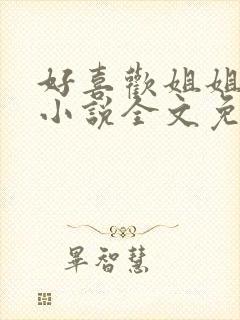 好喜歡姐姐
小說全文免
畢智慧